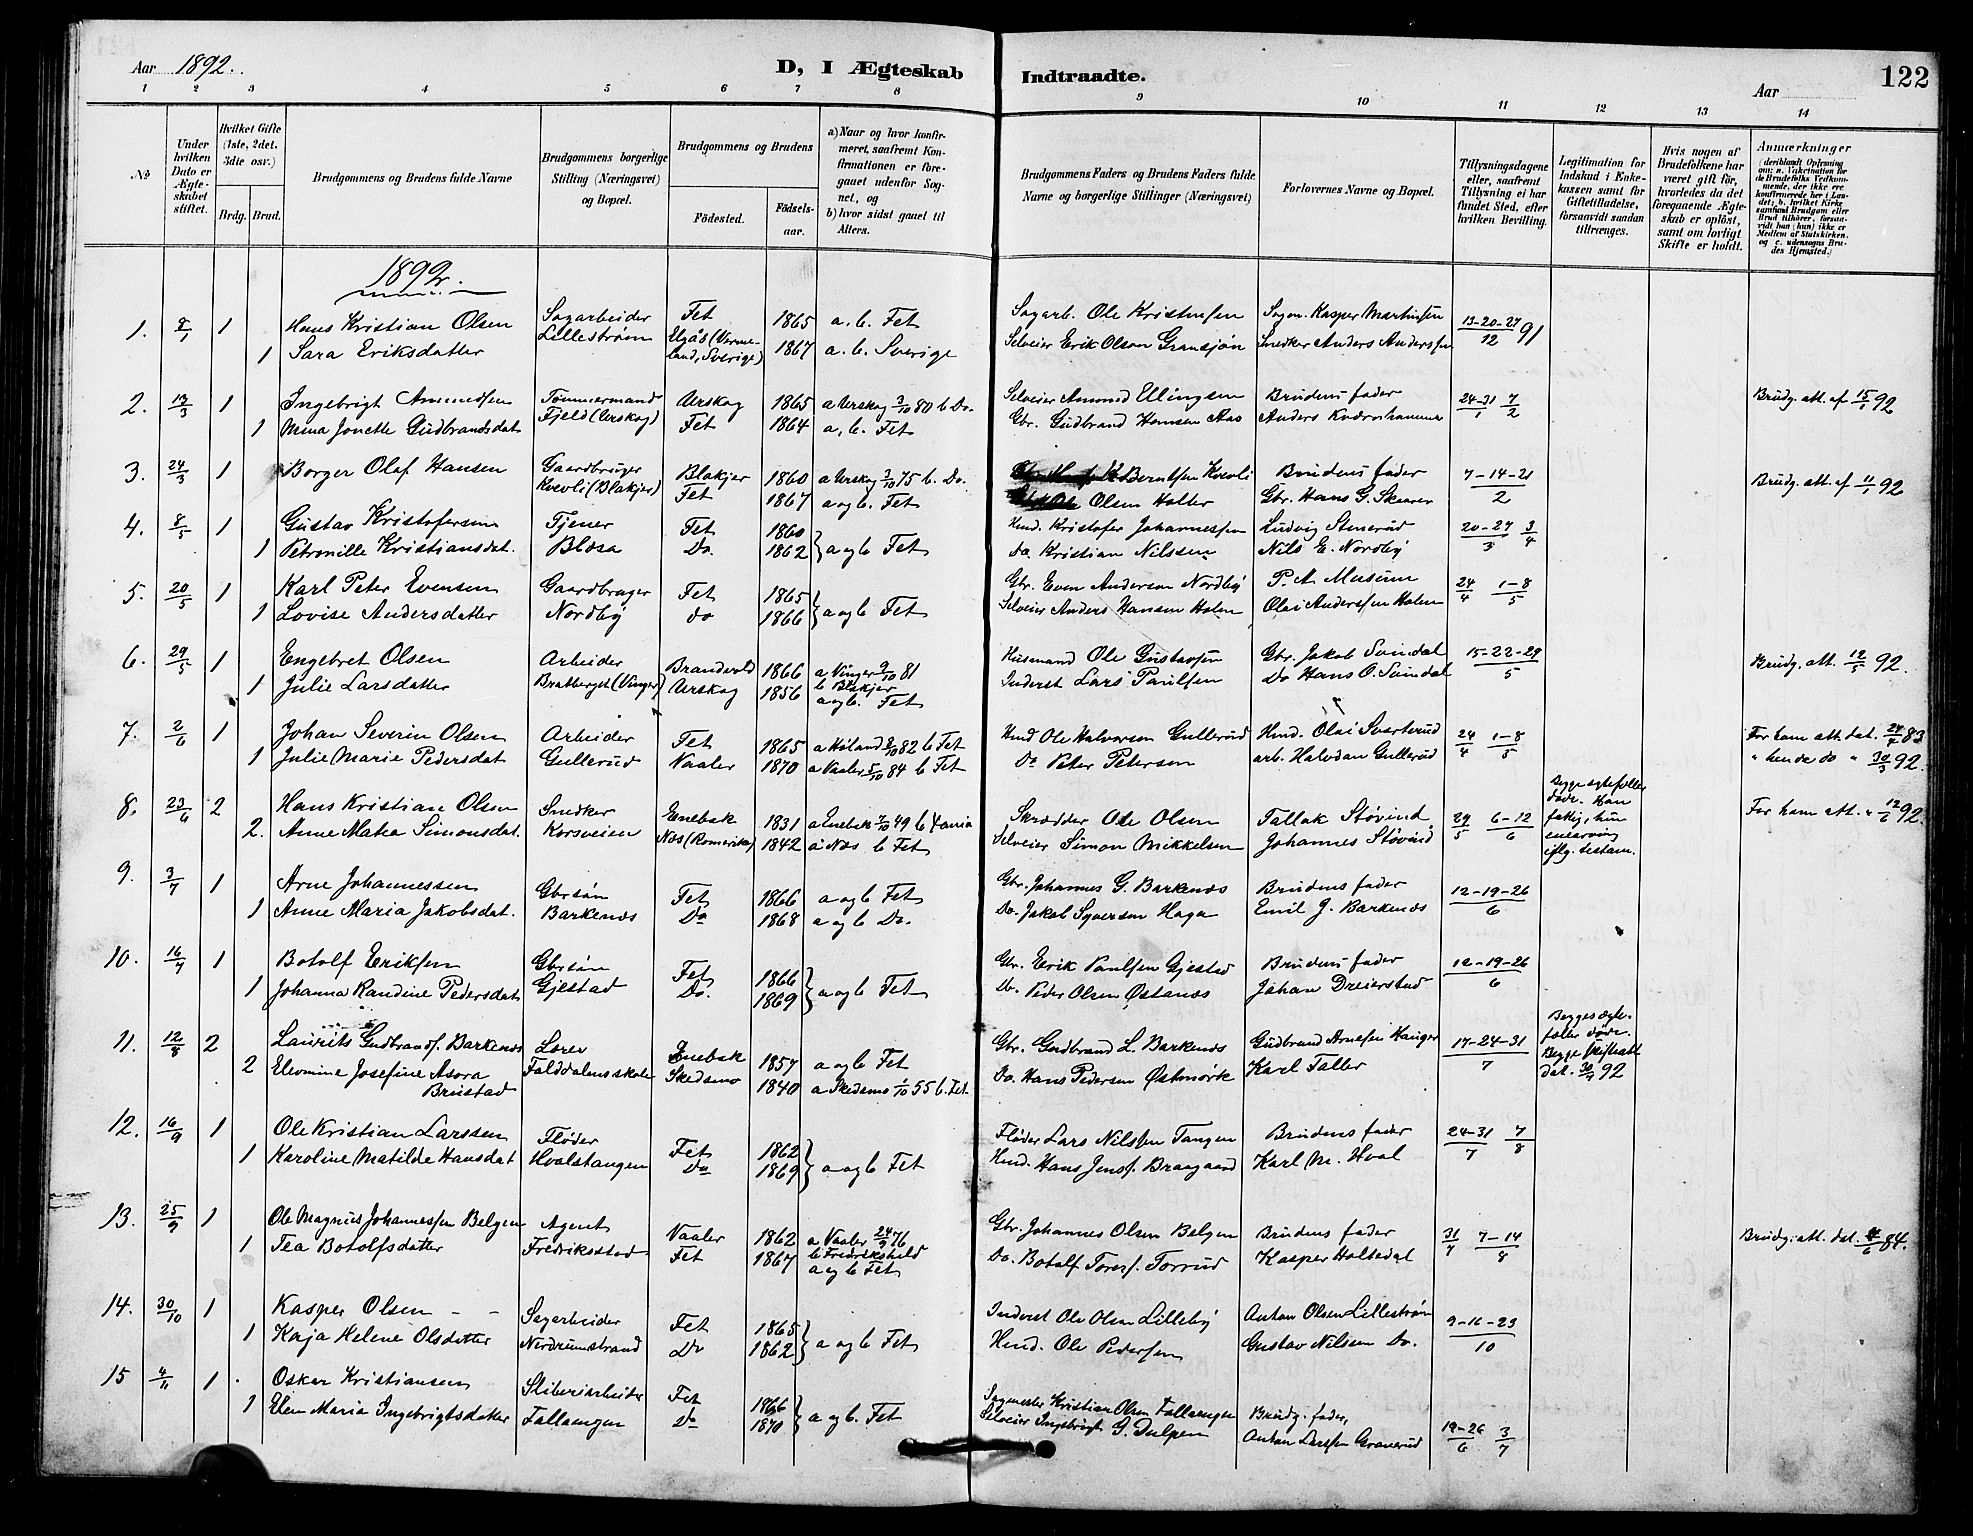 Aar 1892.
D, I Ægteskab Indtraadte.
Aar
122
1 2 3 4 5 6 7 8 9 10 11 12 13 14
No
Under hvilken Dato er Ægteskabet stiftet.
Hvilket Gifte (1ste, 2det, 3die osv.)
Brdg. Brud.
Brudgommens og Brudens fulde Navne
Brudgommens borgerlige Stilling (Næringsvei) og Bopæl.
Brudgommens og Brudens
Födested. Födsels-aar.
a) Naar og hvor konfirmeret, saafremt Konfirmationen er foregaaet udenfor Sognet, og
b) hvor sidst gaaet til Alters.
Brudgommens Faders og Brudens Faders fulde Navne og borgerlige Stillinger (Næringsvei)
Forlovernes Navne og Bopæl.
Tillysningsdagene eller, saafremt Tillysning ei har fundet Sted, efter hvilken Bevilling.
Legitimation for Indskud i Enkekassen samt for Giftetilladelse, forsaavidt saadan tiltrænges.
Hvis nogen af Brudefolkene har været gift för, hvorledes da det foregaaende Ægteskab er oplöst, samt om lovligt Skifte er holdt.
Anmærkninger (deriblandt Oplysning om: a. Vakcination for de Brudefolks Vedkommende, der ikke ere konfirmerede her i Landet; b. hvilket Kirkesamfund Brudgom eller Brud tilhörer, forsaavidt han (hun) ikke er Medlem af Statskirken, og c. udensogns Brudes Hjemsted.)
1892.
1. 8/1 1 Hans Kristian Olsen Sagarbeider Fet 1865 a. b. Fet Sagarb. Ole Kristensen Sagm. Kasper Martinsen 13-20-27/12 91
1 Sara Eriksdatter Lillestrøm Elgås (Vermeland, Sverige) 1867 a. b. Sverige Selveier Erik Olson Gransjön Snedker Anders Anderssen
2. 13/3 1 Ingebrigt Amundsen Tømmermand Urskog 1865 a Urskog 3/10 80 b Do. Selveier Amund Ellingsen Brudens fader 24-31/1 7/2 Brudg. att. af 15/1 92
1 Mina Jonette Gudbrandsdat Fjeld (Urskog) Fet 1864 a, b. Fet Gbr. Gudbrand Hansen Aas Anders Kværnhammer
3. 24/3 1 Borger Olaf Hansen Gaardbruger Blakjer 1860 a Urskog 3/10 75 b. Do. Berntsen Kvevli Brudens fader 7-14-21/2 Brudg. att. af 11/1 92
Kvevli (Blakjer) Fet 1867 a og b. Fet Olsen Holter Gbr. Hans G. Skarer
4. 8/5 1 Gustav Kristofersen Tjener Fet 1860 Husd. Kristofer Johannessen Ludvig Stenerud 20-27/3 3/4
1 Petronille Kristiansdat. Blæsa Do. 1862 a og b Fet Do. Kristian Nilssen Nils E. Nordby
5. 20/5 1 Karl Peter Evensen Gaardbruger Fet 1865 Gbr. Even Andersen Nordby P. A. Musum 24/4 1-8/5
1 Lovise Andersdatter Nordby do 1866 a og b Fet Selveier Anders Hansen Holm Olai Anderssen Holm
6. 29/5 1 Engebret Olsen Arbeider Brandvold 1866 a Vinger 9/10 81 b Blakjer Husmand Ole Gustavsen Gbr. Jakob Svindal 15-22-29/5 Brudg. att. 12/5 92.
1 Julie Larsdatter Bratberget (Vinger) Urskog 1856 a og b. Fet Inderst Lars Paulsen Do Hans O. Svindal
7. 2/6 1 Johan Severin Olsen Arbeider Fet 1865 a Høland 8/10 82 b Fet Hmd Ole Halvorsen Gullerud Hmd. Olai Svarterud 24/4 1-8/5 For ham att. dat. 24/4 83
1 Julie Marie Pedersdat Gullerud Vaaler 1870 a Vaaler 5/10 84 b Fet Do Peter Petersen arb. Halvdan Gullerud " hende do " 30/3 92.
8. 23/6 2 Hans Kristian Olsen Snedker Enebak 1831 a Enebak 7/10 49 b 4 aria Skrædder Ole Olsen Tallak Støvind 29/5 6-12/6 Begge ægtefæller døde. Han fattig, hun enearving iflg. testam. For ham att. " 12/6 92.
2. Anne Matea Simonsdat. Korsveien Næs (Romerike) 1842 a Næs b Fet Selveier Simon Mikkelsen Johannes Støvind
9. 3/7 1 Arne Johannessen Gbrsøn Fet 1866 a og b Fet Gbr. Johannes G. Barkenæs Brudens fader 12-19-26/6
1 Anne Maria Jakobsdat. Barkenæs Do 1868 a og b Do. Do. Jakob Syversen Haga Emil J. Barkenæs
10. 16/7 1 Botolf Eriksen Gbrsøn Fet 1866 Gbr. Erik Paulsen Gjestad Brudens fader 12-19-26/6
1 Johanna Randine Pedersdat Gjestad Do. 1869 a og b Fet Do. Peder Olsen Østanæs Johan Dreierstad
11. 12/8 2 Laurits Gudbrands. Barkenæs Lærer Enebak 1857 a og b Fet Gbr. Gudbrand L. Barkenæs Gudbrand Arnesen Hanger 17-24-31/7 Begges ægtefæller døde. Begge skifteatt dat. 30/7 92
2 Eleomine Josefine Asora Brustad Falddalens skole Skedsmo 1840 a Skedsmo 1/10 55 b. Fet. Do. Hans Pedersen Østmork Karl Faller
12. 16/9 1 Ole Kristian Larssen Fløder Fet 1862 Fløder Lars Nilssen Tangen Brudens fader 24-31/7 7/8
1 Karoline Matilde Hansdat Hvalstangen Do 1869 a og b Fet Hmd. Hans Jens. Braagaard Karl M. Hval
13. 25/9 1 Ole Magnus Johannessen Belgen Agent Vaaler 1862 a Vaaler 24/9 76 b Fredrikshald Gbr. Johannes Olsen Belgen Brudens fader 31/7 7-14/8 Brudg. att. dat. 4/6 84.
1 Tea Botolfsdatter Fredriksstad Fet 1867 a og b Fet Do. Botolf Tores. Torrud Kasper Holtedal
14. 30/10 1 Kasper Olsen - - Sagarbeider Fet 1865 Inderst Ole Olsen Lilleby Anton Olsen Lillestrøm 9-16-23/10
1 Kaja Helene Olsdatter Nerdrumstrand Do 1862 a og b Fet Hmd. Ole Pedersen Gustav Nilsen Do.
15 4/11 1 Oskar Kristiansen Sliberiarbeider Fet 1866 Sagmester Kristian Olsen Fallangen Brudg. fader,
1 Elen Maria Ingebrigtsdatter Fallangen Do 1870 a og b. Fet Selveier Ingebrigt G. Dulpen Anton Larssen Granerud 19-26/6 3/7